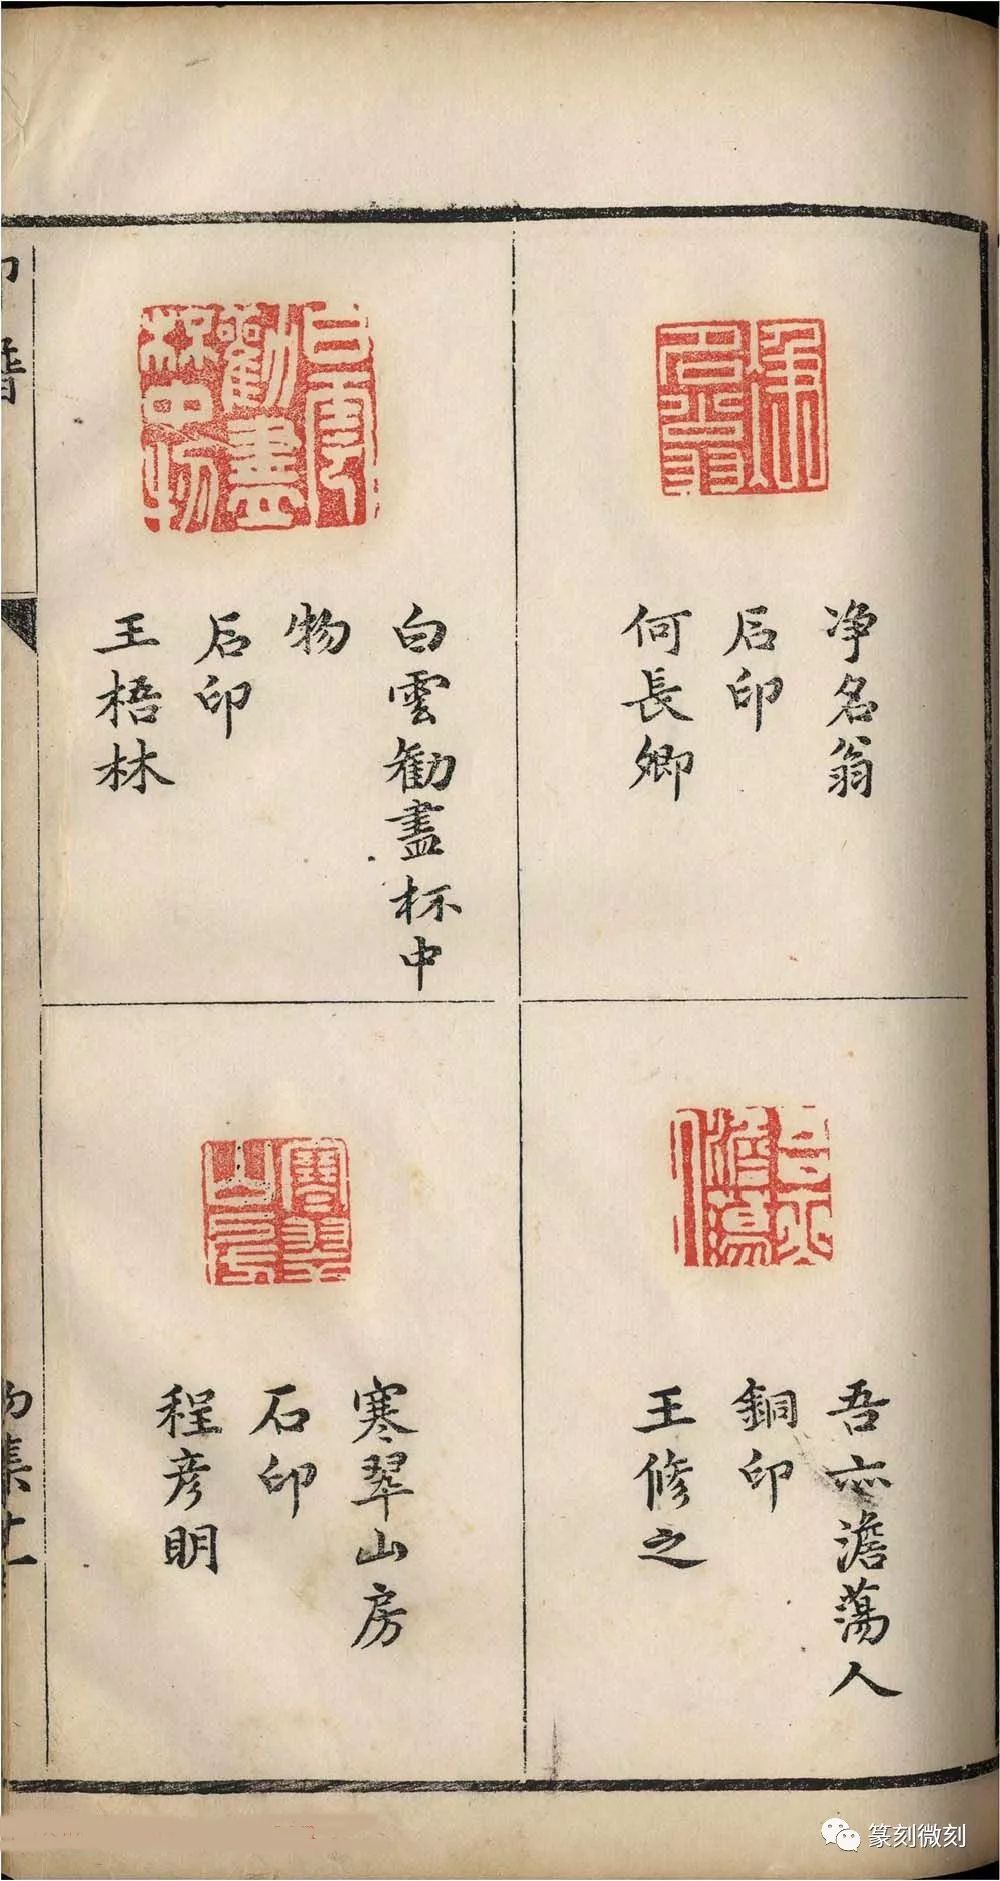 净名翁
石印
何長卿
白雲勸盡杯中
物
石印
王梧林
吾亦澹蕩人
銅印
王修之
寒翠山房
石印
程彦明
篆刻微刻